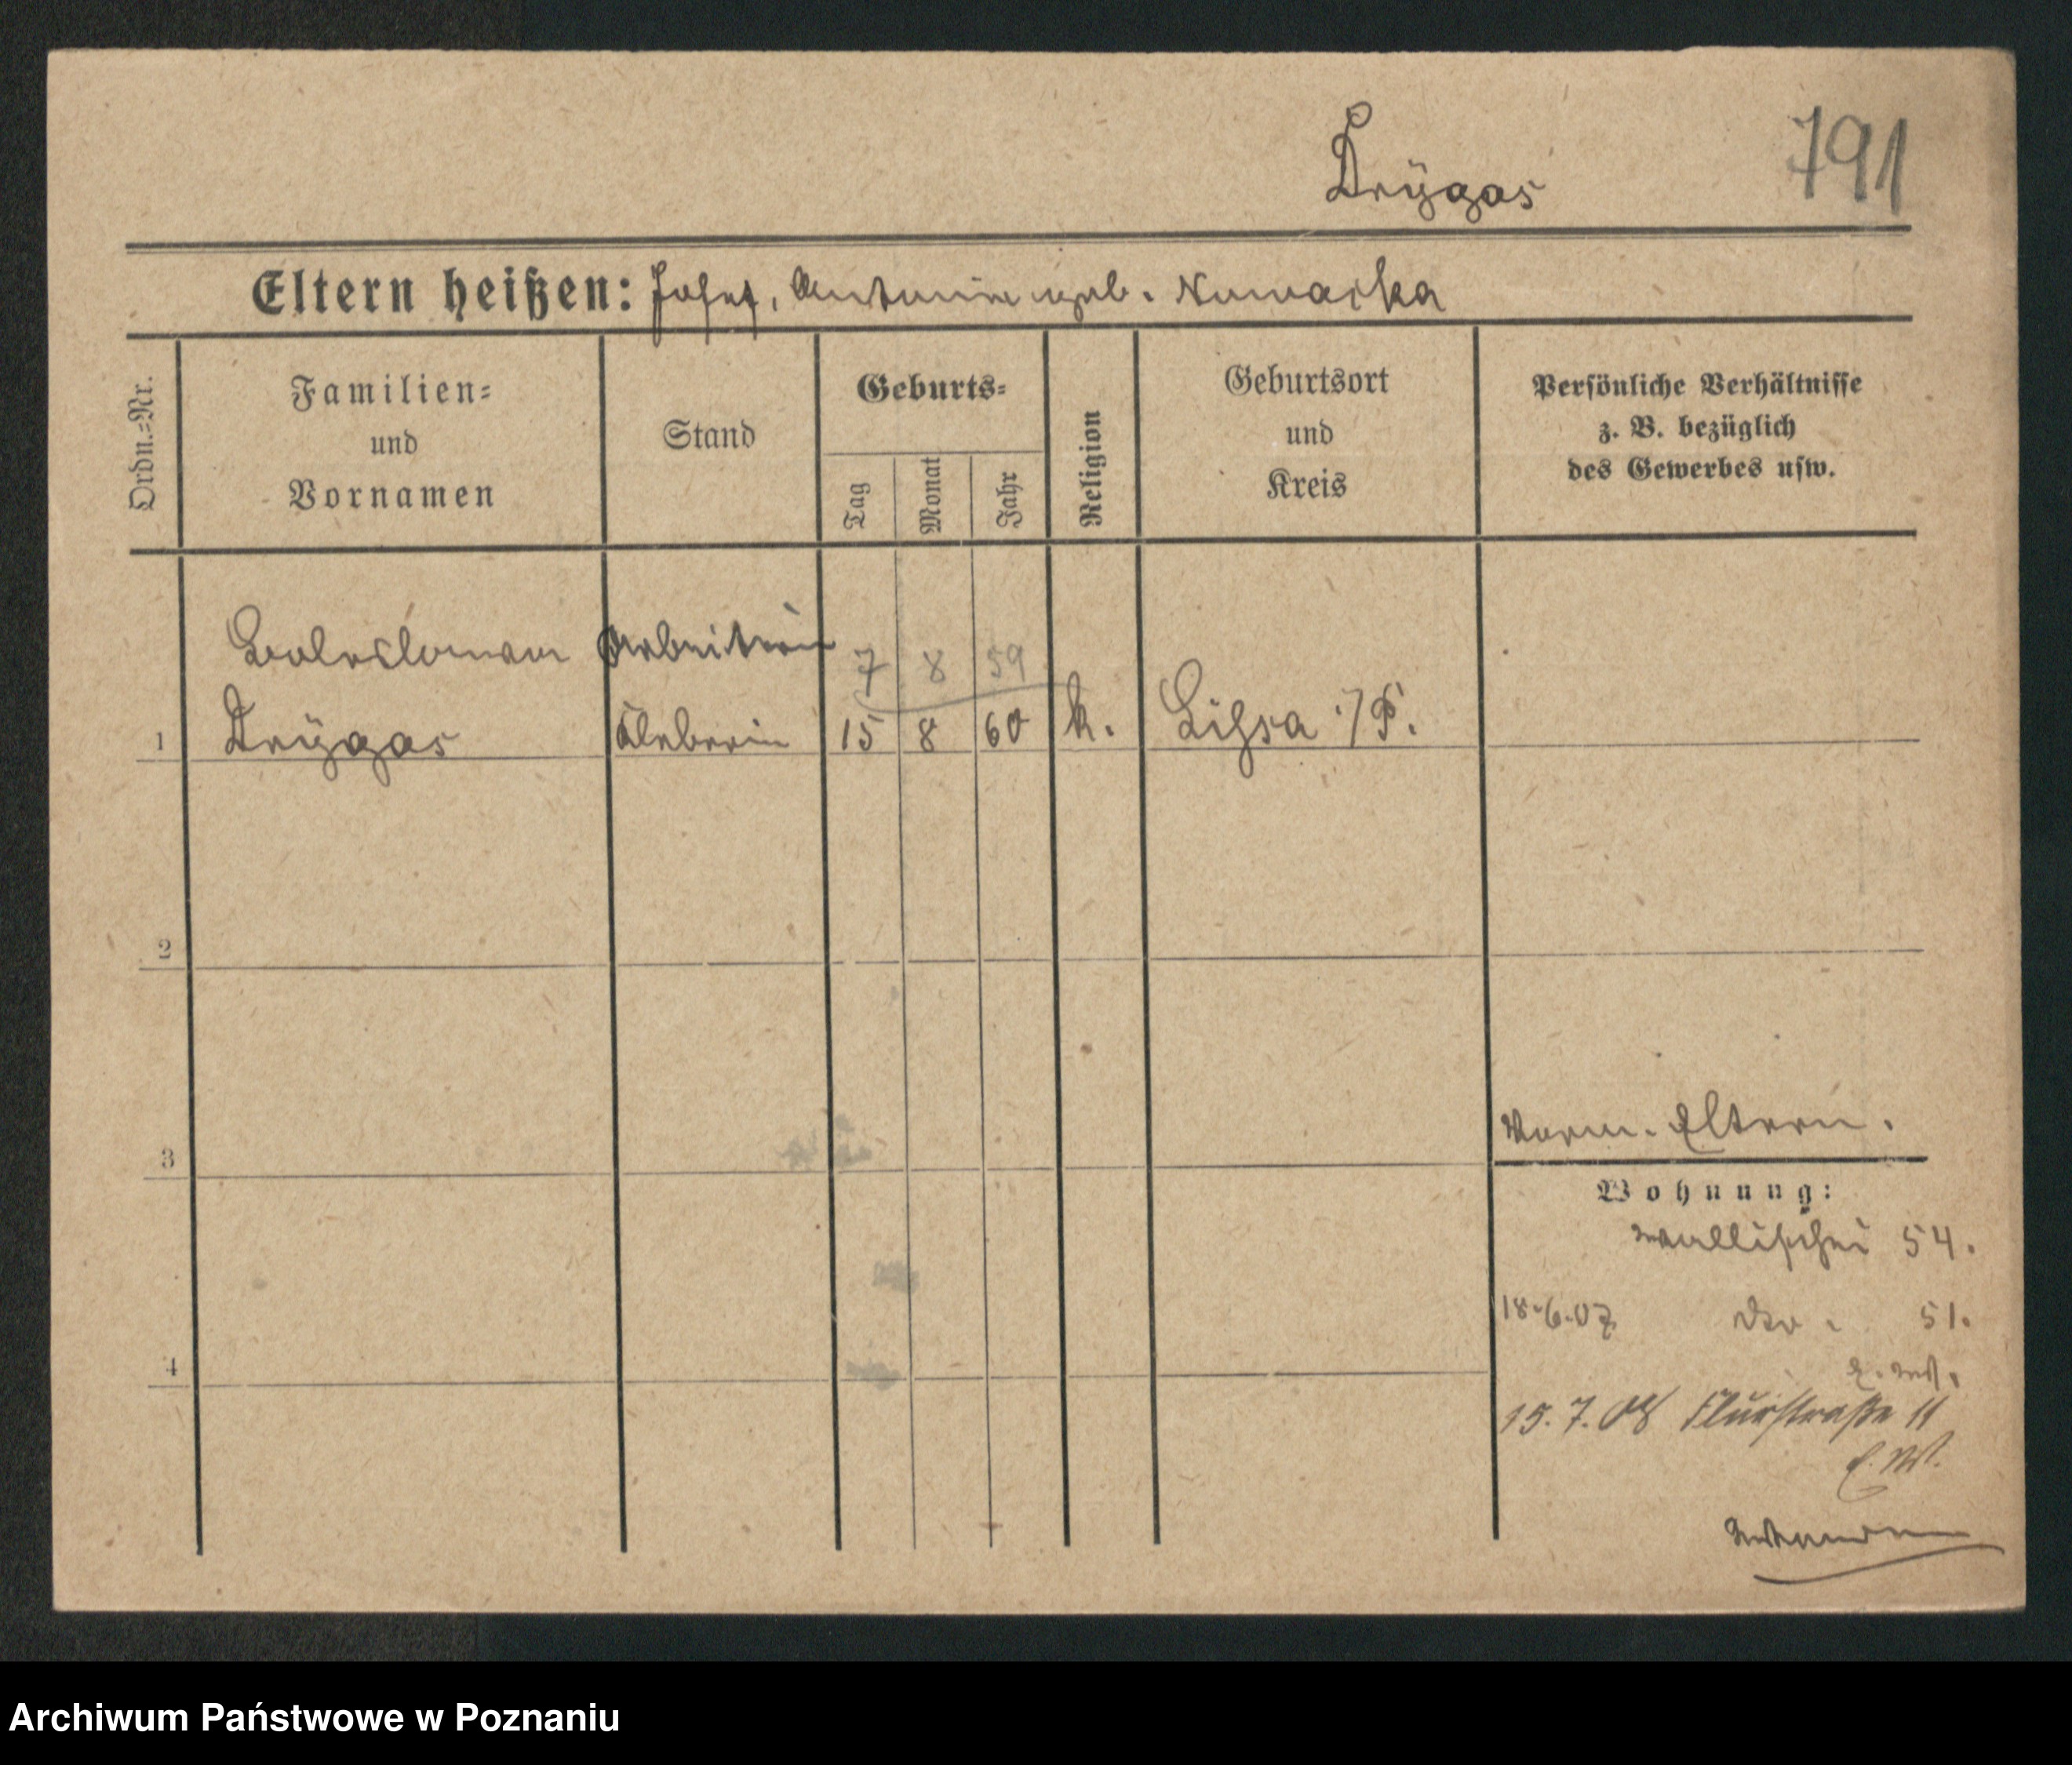 Drÿgas
791
Eltern heißen: Josef, Antonie geb. Nowacka
Ordn.=Nr.
Familien=
und
Vornamen
Stand
Geburts=
Tag
Monat
Jahr
Religion
Geburtsort
und
Kreis
Persönliche Verhältnisse
z. B. bezüglich
des Gewerbes usw.
Arbeiterin
7 8 59
1 Drÿgas Kleberin 15 8 60 k. Lissa i/P.
2
3
4
Eltern.
Wohnung:
Wallischei 54.
18.6.07 dto. 51.
15.7.08 Flurstraße 11
Archiwum Państwowe w Poznaniu